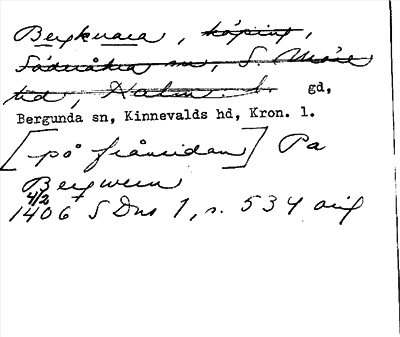 Bergkvara, köping,
Söderåkra sn, S. Möre
hd, Kalm. l. gd,
Bergunda sn, Kinnevalds hd, Kron. l.
[på frånsidan] Pa
Bergwern
4/2
1406 SDns 1, s. 534 orig